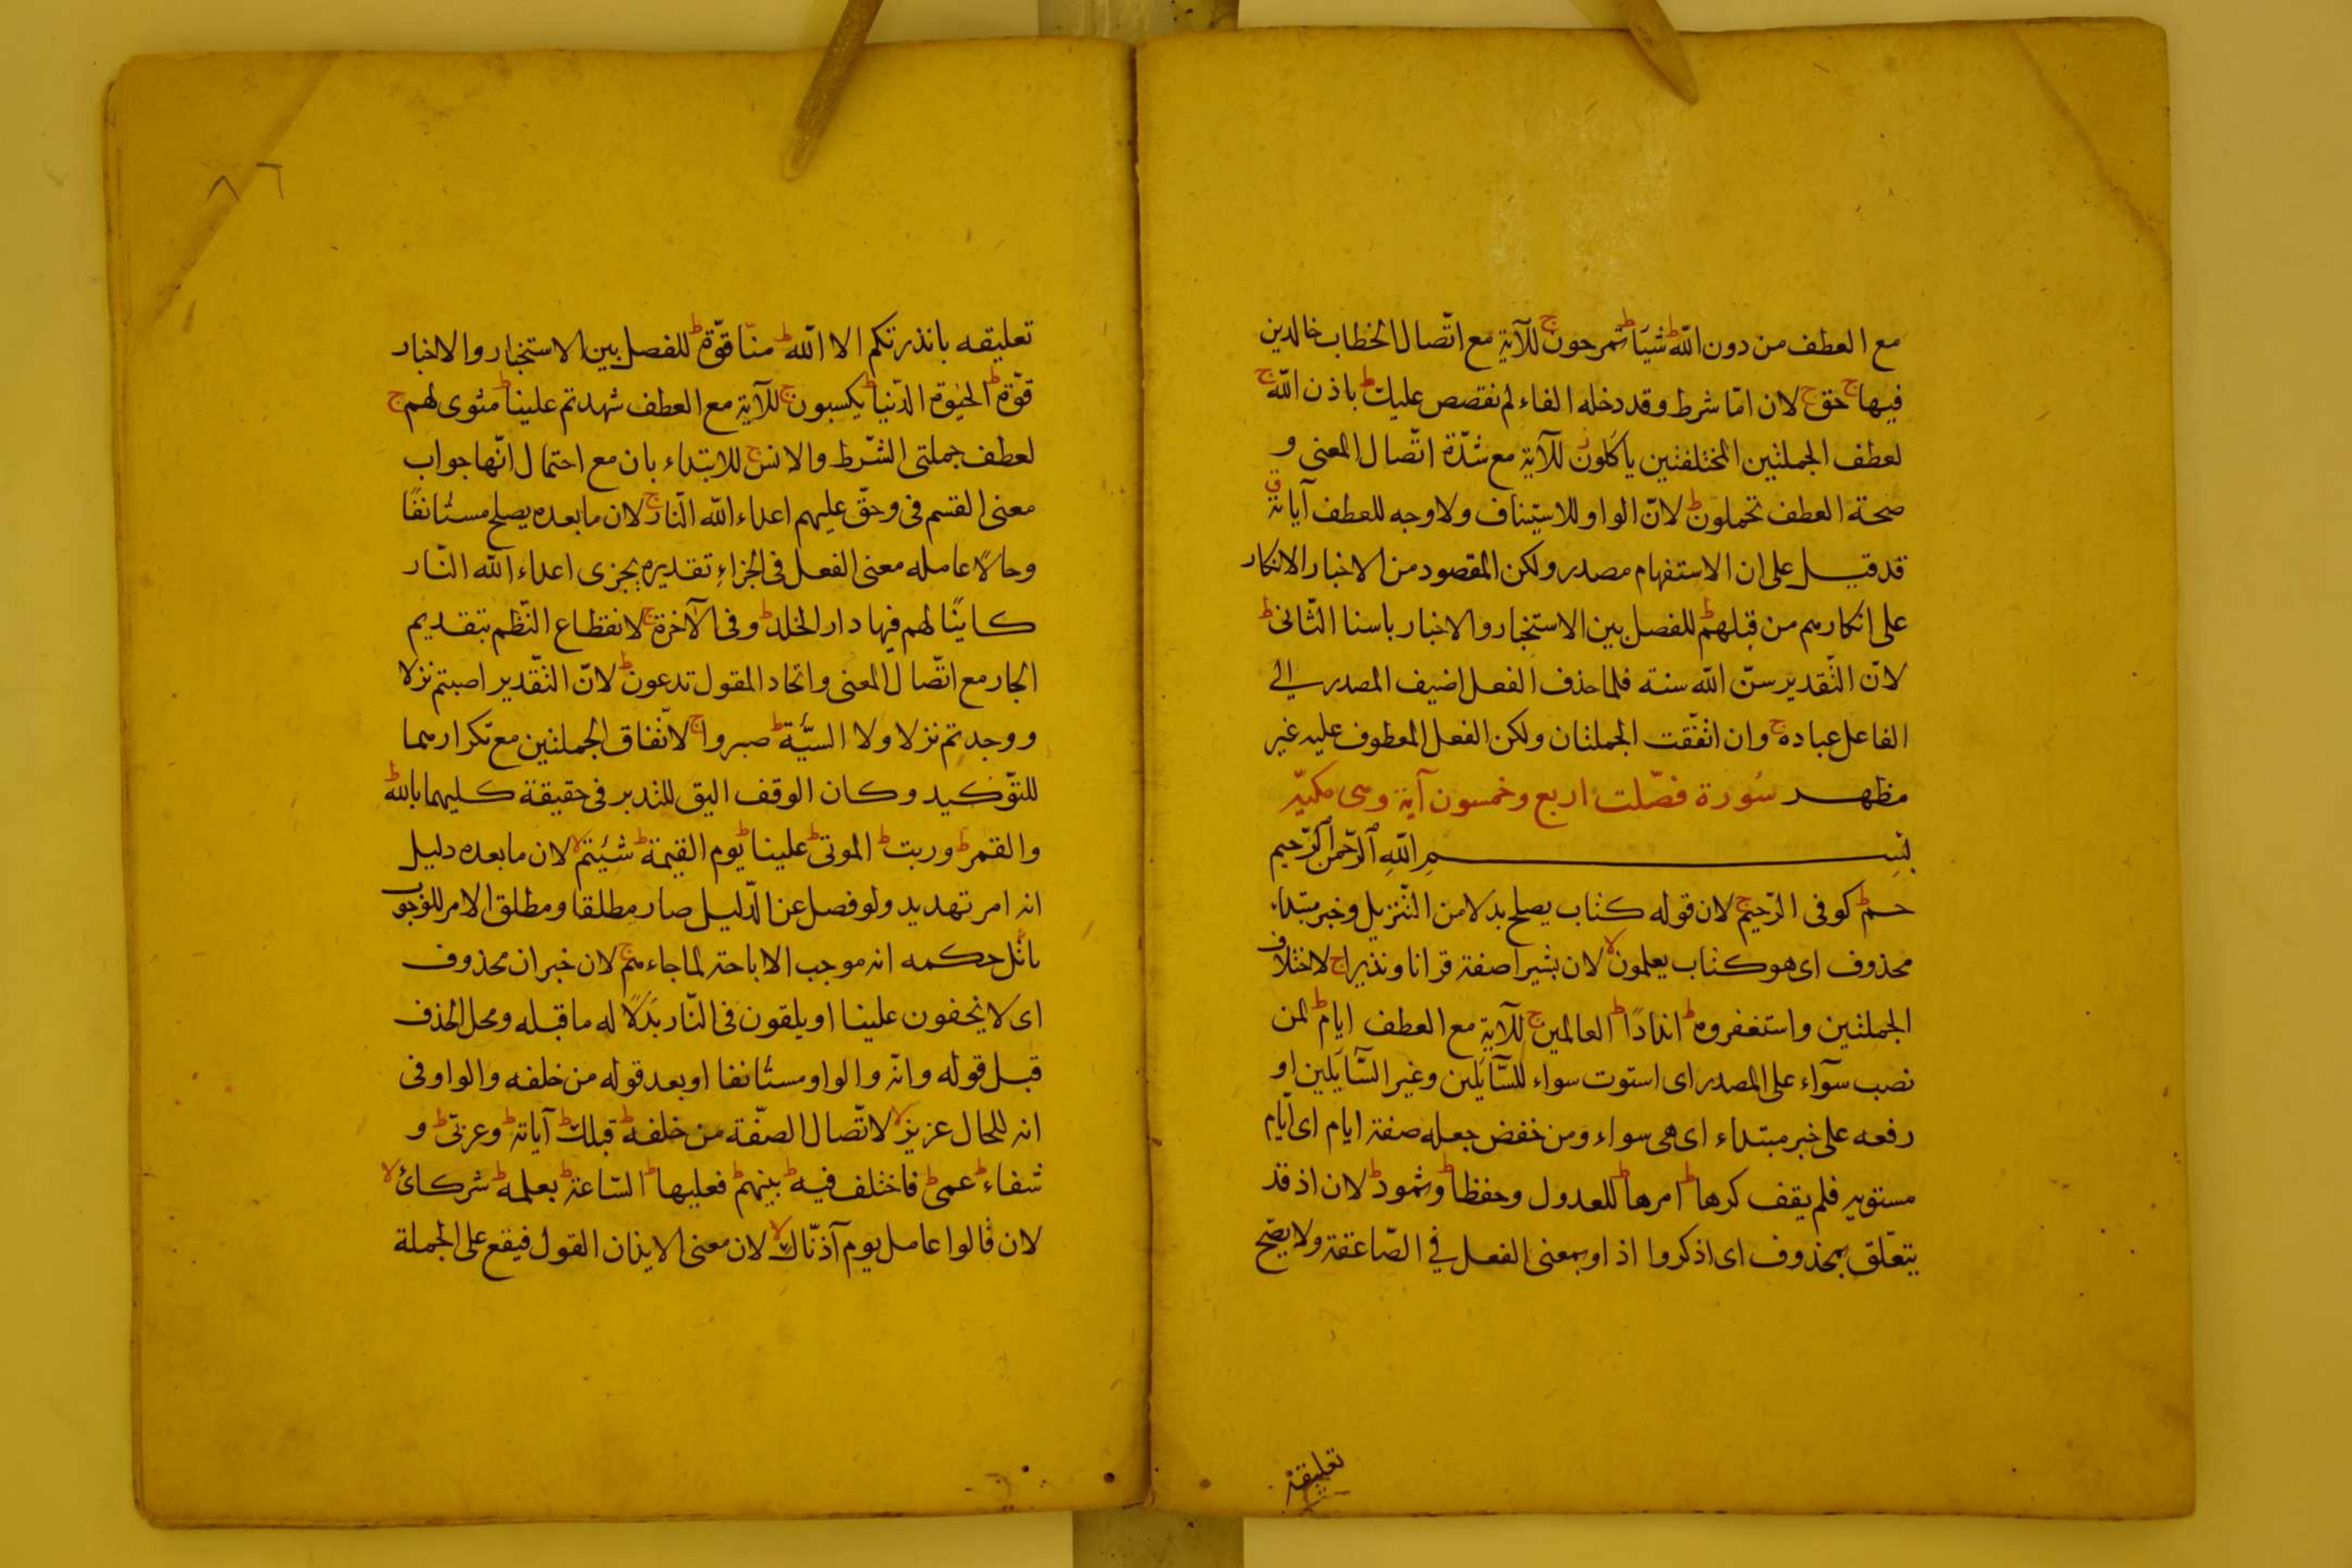 مع العطف من دون الله ط شيئا ط تمرحون ج للآية مع اتّصال الخطاب خالدين
فيها ج حق ج لان امّا شرط وقد دخله الفاء لم نقصص عليك ط باذن الله ج
لعطف الجملتين المختلفتين ياكلون للآية مع شدّة اتّصال المعنى و
صحة العطف تحملون ط لانّ الواو للاستيناف ولا وجه للعطف آياته ق
قد قيل على ان الاستفهام مصدر ولكن المقصود من الاخبار الانكار
على انكارهم من قبلهم ط للفصل بين الاستخبار والاخبار باسنا الثّانى ط
لانّ التّقدير سنّ الله سنة فلما حذف الفعل اضيف المصدر الى
الفاعل عباده ج وان اتّفقت الجملتان ولكن الفعل المعطوف عليه غير
مظهر سُورة فصّلت اربع وخمسون آية وهى مكيّة
بِسمِ اللهِ الرّحمن الرّحيم
حم ط كوفى الرّحيم ج لان قوله كتاب يصلح بدلا من التّنزيل وخبر مبتداء
محذوف اى هو كتاب يعلمون لا لان بشيرا صفة قرانا ونذيرا ج لاختلاف
الجملتين واستغفروه ط اندادًا ط العالمين ج للآية مع العطف ايام ط لمن
نصب سوآء على المصدر اى استوت سواء للسّآئلين وغير السّآئلين او
رفعه على خبر مبتداء اى هى سواء ومن خفض جعله صفة ايام اى ايّام
مستوية فلم يقف كرها ط امرها ط للعدول وحفظا ط وثمود ط لان اذ قد
يتعلّق بمحذوف اى اذكروا اذ او بمعنى الفعل في الصّاعقة ولا يصّح
تعليقه
تعليقه بانذرتكم الا الله ط منّا قوّة ط للفصل بين الاستخبار والاخبار
قوّة ط الحيٰوة الدّنيا ط يكسبون ج للآية مع العطف شهدتم علينا ط مثوى لهم ج
لعطف جملتى الشّرط والانس ج للابتداء بان مع احتمال انّها جواب
معنى القسم فى وحقّ عليهم اعداء الله النّار ج لان ما بعده يصلح مستأنفًا
وحالًا عامله معنى الفعل فى الجزاءِ تقديره يجزى اعداء الله النّار
كاينًا لهم فيها دار الخلد ط وفى الآخرة ج لانقطاع النّظم بتقديم
الجار مع اتّصال المعنى واتحاد المقول تدعون ط لانّ التّقدير اصبتم نزلا
ووجدتم نزلا ولا السيّئة ط صبروا ج لاتّفاق الجملتين مع تكرار مما
للتّوكيد وكان الوقف اليق للتدبر فى حقيقة كليهما بالله ط
والقمر ط وربت ط الموتى ط علينا ط يوم القيمة ط شئتم لا لان ما بعده دليل
انه امر تهديد ولو فصل عن الدّليل صار مطلقا ومطلق الامر للوجوب
حكمه انه موجب الاباحة لما جاءهم ج لان خبر ان محذوف
اى لا يخفون علينا او يلقون فى النّار بَدَلًا له ما قبله ومحل الحذف
قبل قوله وانّه والواو مستأنفا او بعد قوله من خلفه والواو فى
انه للحال عزيز لا لاتّصال الصّفة من خلفه ط قبلك ط آياته ط وعربّى ط و
شفاء ط عمى ط فاختلف فيه ط بينهم ط فعليها ط السّاعة ط بعلمه ط شركائى لا
لان قالوا عامل يوم آذنّاك لا لان معنى الايذان القول فيقع على الجملة